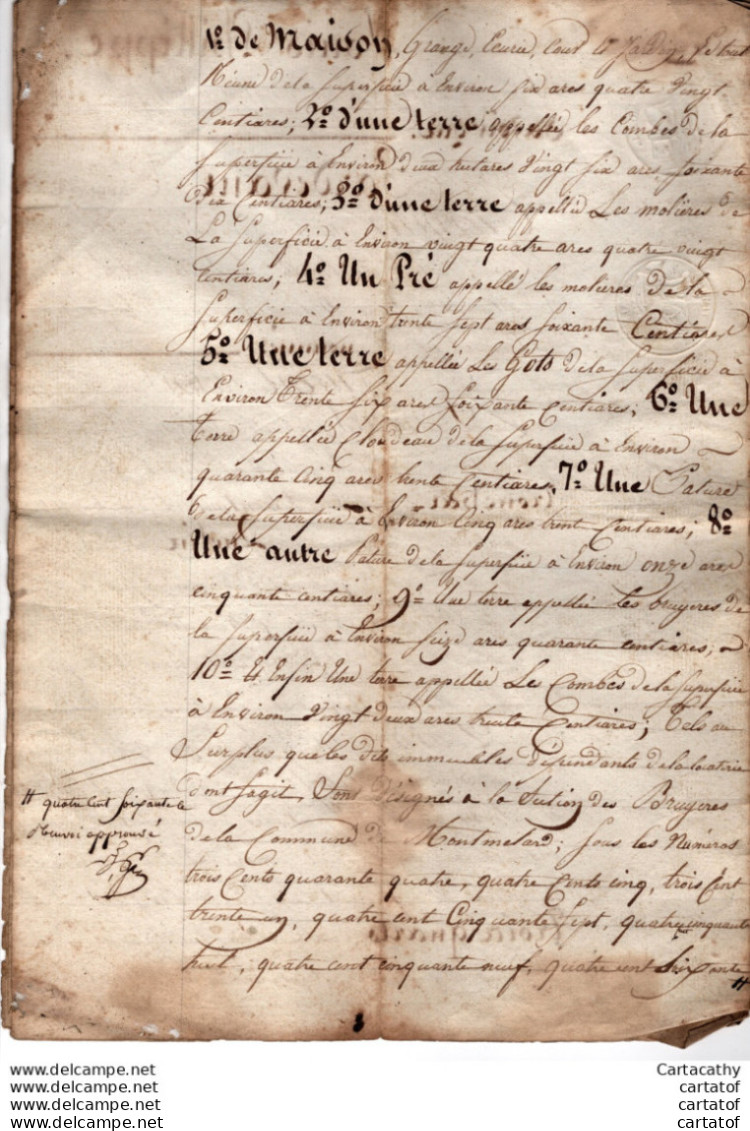 1º de Maison, Grange, Ecurie, Cour et Jardin, Le tout
Réuni de la superficie à Environ six ares quatre Vingt
Centiares; 2º d'une terre, appellée les Combes de la
Superficie à Environ deux hectares Vingt six ares soixante
dix Centiares; 3º d'une terre appellée Les molières de
La Superficie à Environ vingt quatre ares quatre vingt
Centiares; 4º Un Pré appellé les molieres de la
Superficie à Environ trente sept ares soixante Centiares
5º Une terre appellée Les Gots de la Superficie à
Environ Trente six ares soixante Centiares; 6º Une
terre appellée Cloudeau de la Superficie à Environ
quarante cinq ares trente Centiares, 7º Une Pature
de la Superficie à Environ Cinq ares trent Centiares; 8º
Une autre Pature de la Superficie à Environ onze ares
cinquante centiares; 9º Une terre appellée les bruyeres de
la superficie à Environ seize ares quarante centiares;
10º Et Enfin Une terre appellée Les Combes de la Superficie
à Environ Vingt deux ares trente Centiares; Tels au
Surplus que les dits immeubles dépendants de la locaterie
dont sagit, Sont désignés à la Section des Bruyeres
de la Commune de Montmelard; sous les Numéros
trois Cents quarante quatre, quatre Cents cinq, trois Cent
trente un, quatre cent Cinquante Sept, quatre cent cinquante
huit, quatre cent cinquante neuf, quatre cent Soixante #
# quatre Cent soixante
Renvoi approuvé
www.delcampe.net
www.delcampe.net
www.delcampe.net
www.delcampe.net
Cartacathy
cartatof
cartatof
cartatof